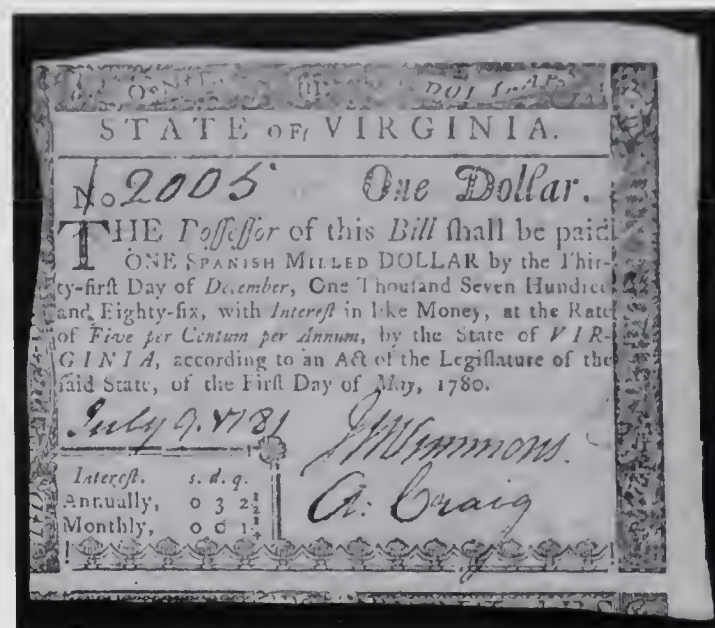 DOLLARS
STATE OF VIRGINIA.
No 2005 One Dollar.
THE Poſſeſſor of this Bill ſhall be paid
ONE SPANISH MILLED DOLLAR by the Thir-
ty-firſt Day of December, One Thouſand Seven Hundred
and Eighty-ſix, with Intereſt in like Money, at the Rate
of Five per Centum per Annum, by the State of VIR-
GINIA, according to an Act of the Legiſlature of the
ſaid State, of the Firſt Day of May, 1780.
July 9. 1781 Simmons.
Intereſt. s. d. q. A. Craig
Annually, 0 3 2½
Monthly, 0 0 1¼